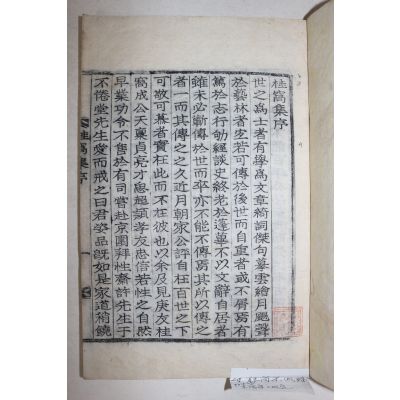 桂窩集序
世之爲士者有學爲文章綺詞傑句摹雲繪月颺聲
於藝林者宜若可傳於後世而自重者或不屑焉有
篤於志行劬經談史終老於蓬蓽不以文辭自居者
雖未必斬傳於世而卒亦不能不傳焉其所以傳之
者一而其傳之之久近月朝家公評自在百世之下
可敬可慕者實在此而不在彼也以余所見庚友桂
窩成公天稟貞亮才思超穎孝友忠信若性之自然
早業功令不售於有司嘗赴京圍拜性齋許先生于
不倦堂先生愛而戒之曰君姿品旣如是家道苟饒
桂窩集序
一